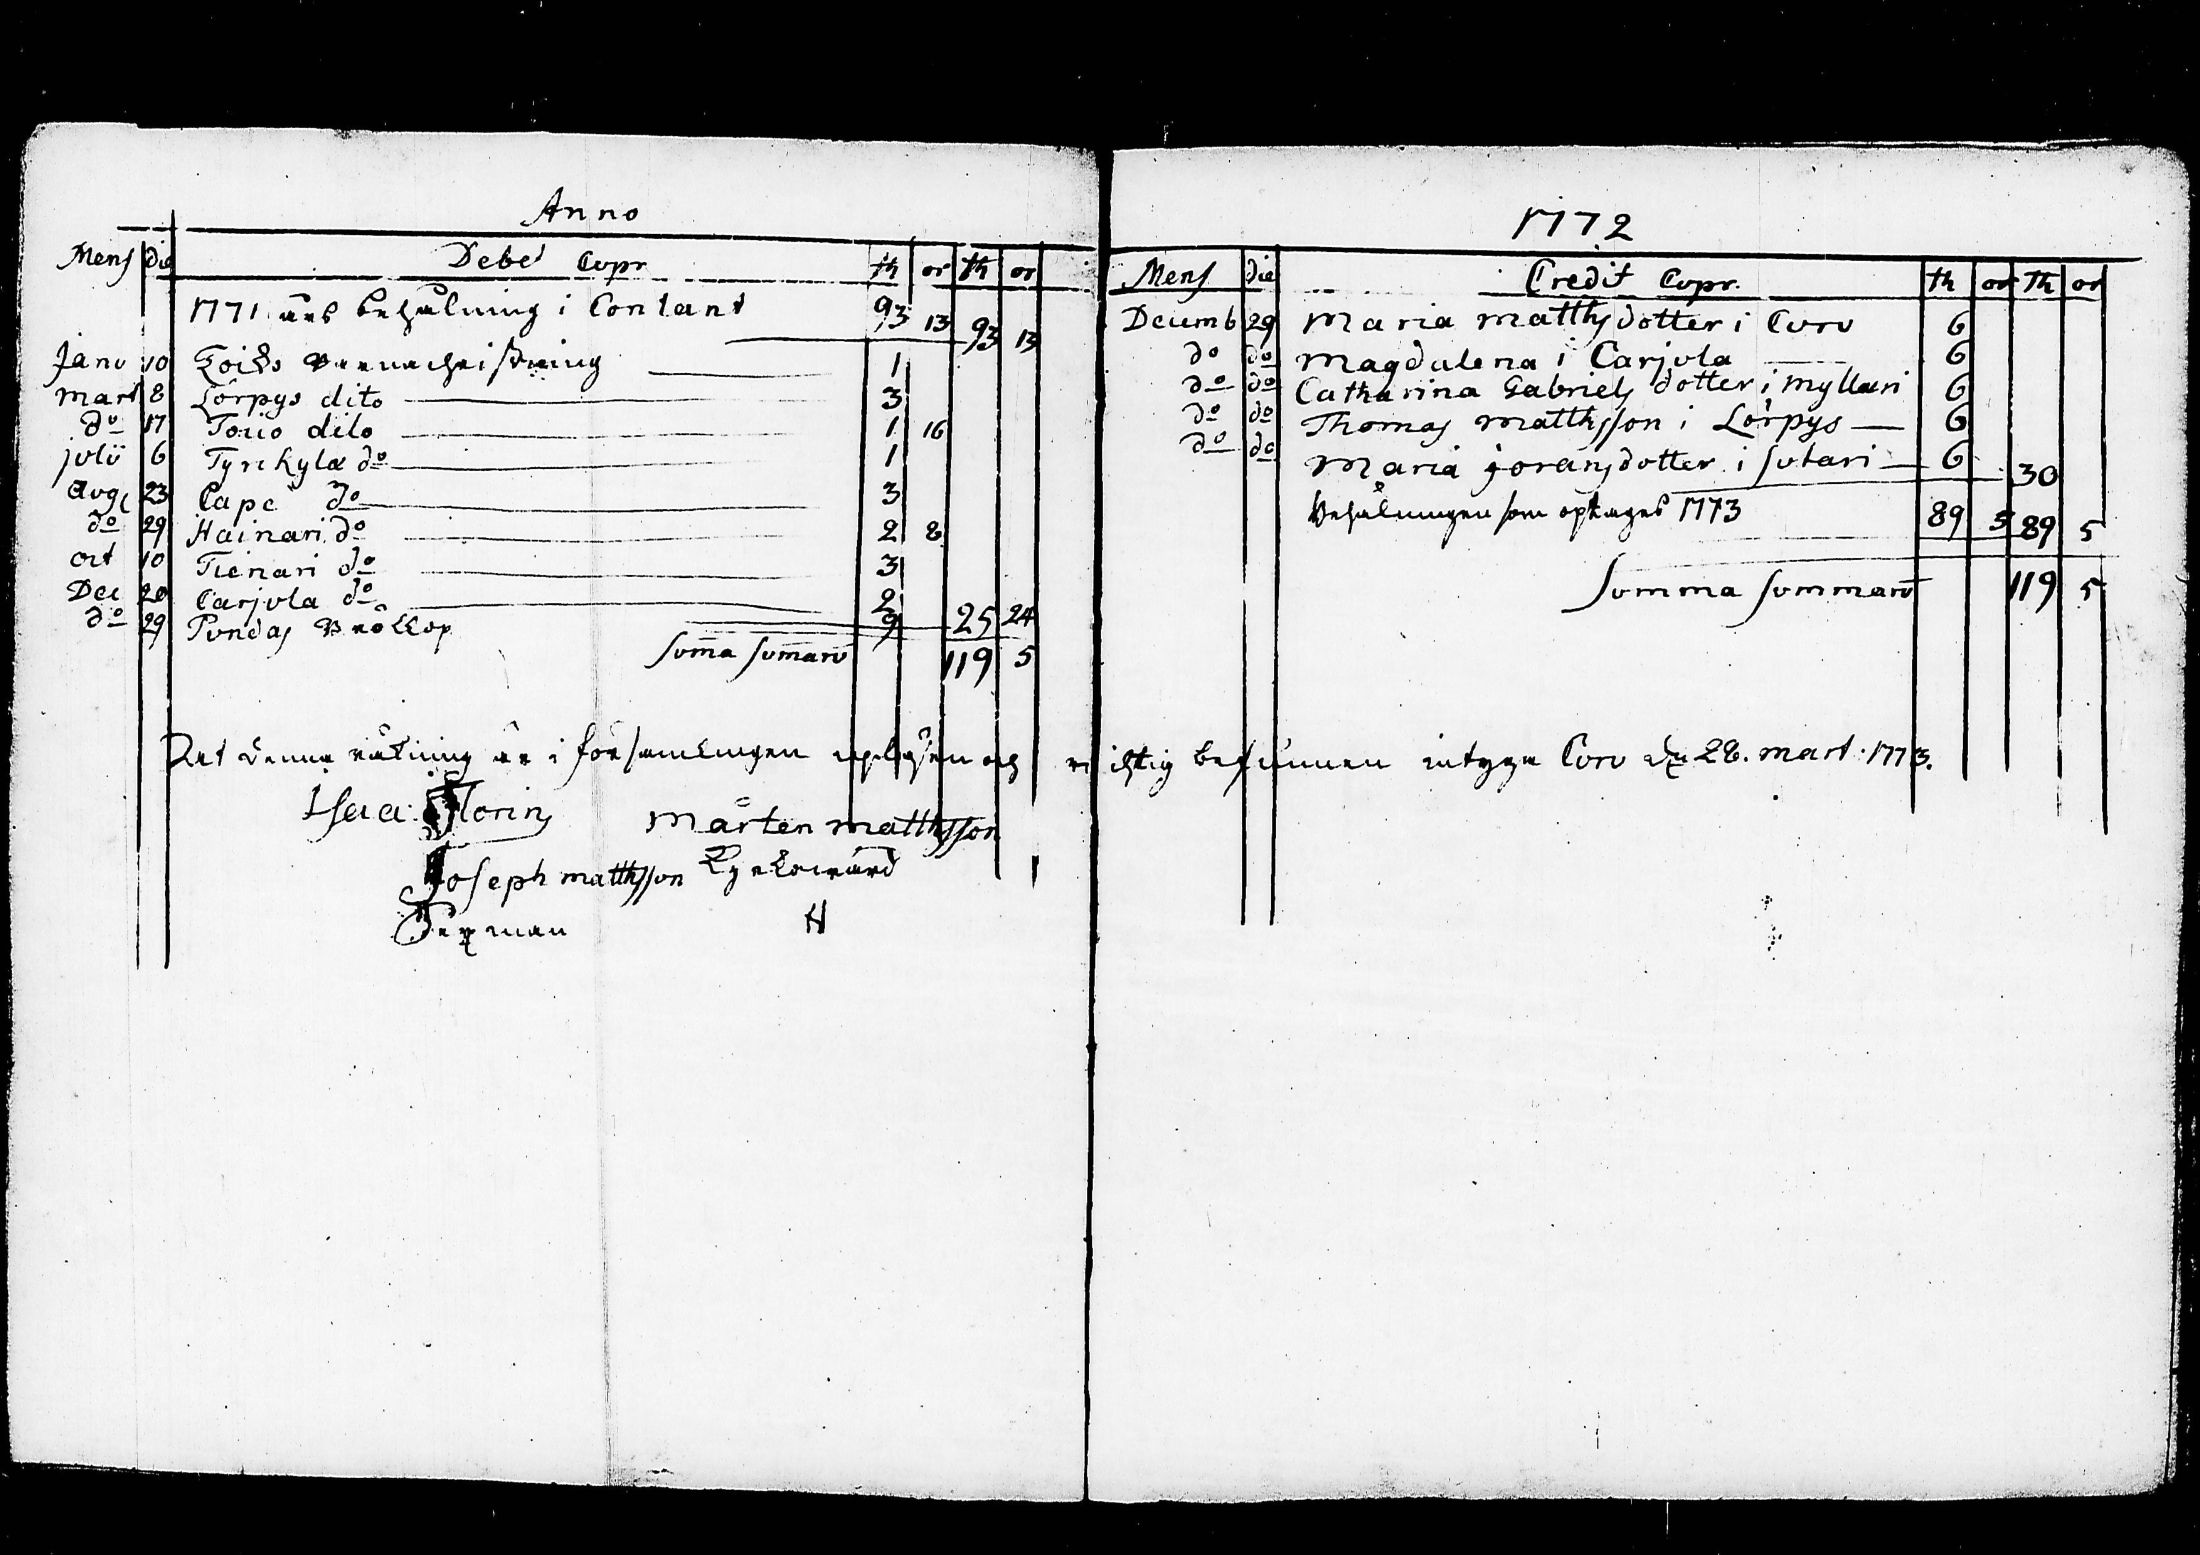 Anno
Mens die Debet Cupr th or th or
1771 års behålning i Contant 93 13 93 13
Janu 10 Loiks Barnachristning 1
Mart 8 Lörpys dito 3
do 17 Torio dito 1 16
julii 6 Tyrikylæ do 1
Aug 23 Cape do 3
do 29 Hainari do 2 8
oct 10 Tienari do 3
Dec 20 Carjula do 2
do 29 Pundas Bröllop 9 25 24
Suma Sumarū 119 5
1772
Mens die Credit Cupr. th or th or
Decemb 29 Maria Matthsdotter i Curu 6
do do Magdalena i Carjula 6
do do Catharina Gabriels dotter i Myllæri 6
do do Thomas Matthsson i Lörpys 6
do do Maria Joransdotter i Sutari 6 30
Behålningen som optages 1773 89 5 89 5
Summa Summarū 119 5
Det denna räkning är i församlingen upläsen och richtig befunnen intyga Curu den 28. Mart. 1773.
Isaac Florin Mårten Matthsson
Joseph Matthsson Kyrkowärd
Sexman H